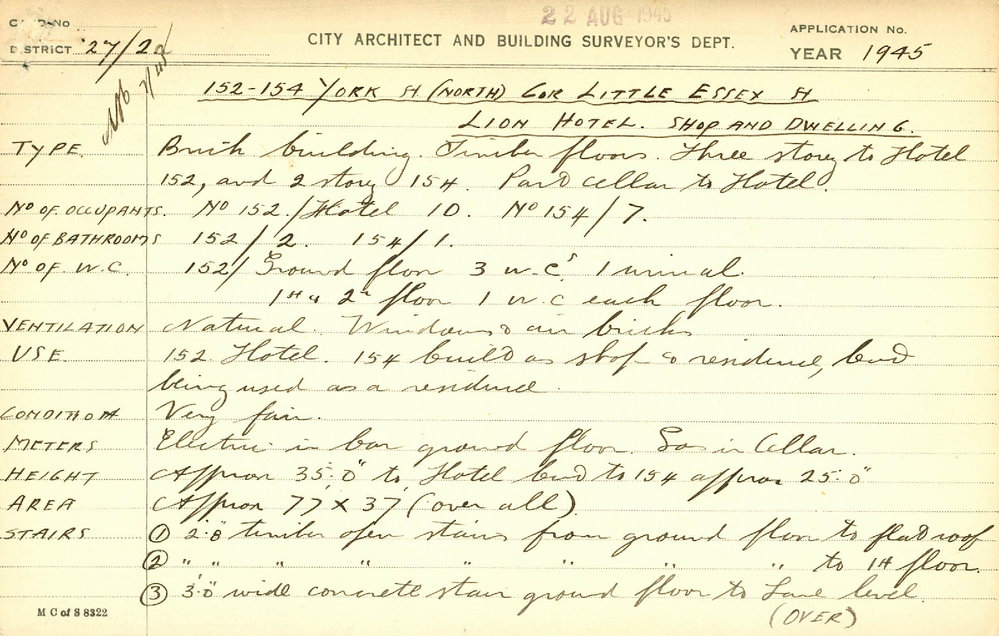 22 AUG 1945
CARD No
DISTRICT 27/2
CITY ARCHITECT AND BUILDING SURVEYOR'S DEPT.
APPLICATION No.
YEAR 1945
152-154 YORK St (NORTH) COR LITTLE ESSEX St
LION HOTEL. SHOP AND DWELLING.
TYPE. Brick building. Timber floors. Three story to Hotel
152, and 2 story 154. Part cellar to Hotel.
No OF OCCUPANTS. No 152/Hotel 10. No 154/7.
No OF BATHROOMS 152/2. 154/1.
No OF W.C. 152/ Ground floor 3 W.Cs 1 urinal.
1st & 2nd floor 1 W.C each floor.
VENTILATION Natural. Windows & air bricks
USE 152 Hotel. 154 build as shop & residence, but
being used as a residence.
CONDITION Very fair.
METERS Electric in bar ground floor. Gas in Cellar.
HEIGHT Approx 35'.0" to Hotel but to 154 approx 25'.0"
AREA Approx 77' x 37' (over all)
STAIRS ① 2'.8" timber open stairs from ground floor to flat roof
② " " " " " " " to 1st floor.
③ 3'.0" wide concrete stair ground floor to Lane level.
(OVER)
M C of S 8322